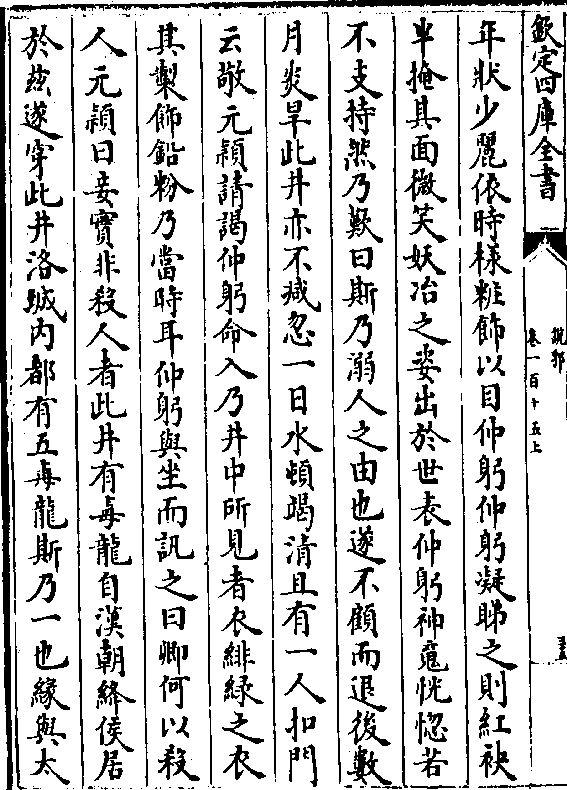 欽定四庫全書
説郛
卷一百十五上
年狀少麗依時様粧飾以目仲躬仲躬凝睇之則紅袂
半掩其面微笑妖冶之姿出於世表仲躬神䰟恍惚若
不支持然乃歎曰斯乃溺人之由也遂不顧而退後數
月炎旱此井亦不減忽一日水頓竭清旦有一人扣門
云敬元頴請謁仲躬命入乃井中所見者衣緋緑之衣
其製飾鉛粉乃當時耳仲躬與坐而訊之曰卿何以殺
人元頴曰妾實非殺人者此井有毒龍自漢朝絳侯居
於兹遂穿此井洛城内都有五毒龍斯乃一也緣與太